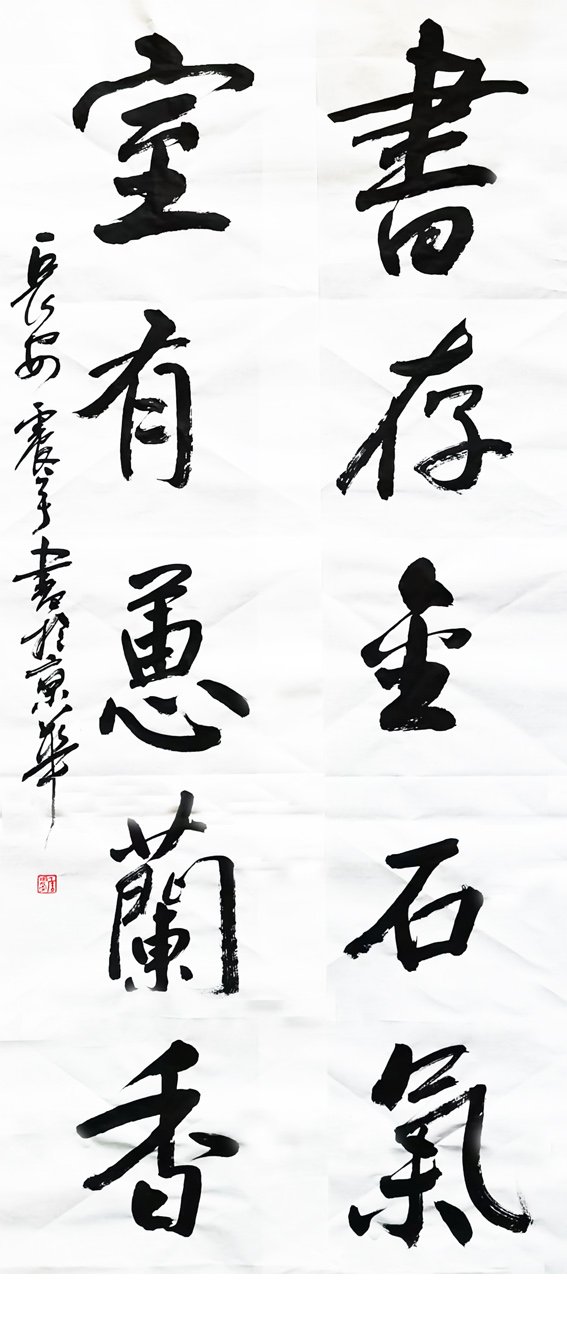 書存金石氣
室有蕙蘭香
長安震宇書於京華